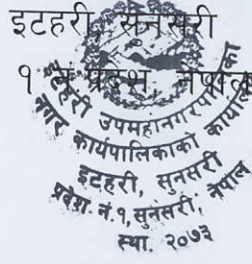 इटहरी, सुनसरी
१ नं. प्रदेश नेपाल
इटहरी उपमहानगरपालिका
नगर कार्यपालिकाको कार्यालय
इटहरी, सुनसरी
प्रदेश नं. १, सुनसरी, नेपाल
स्था. २०७३